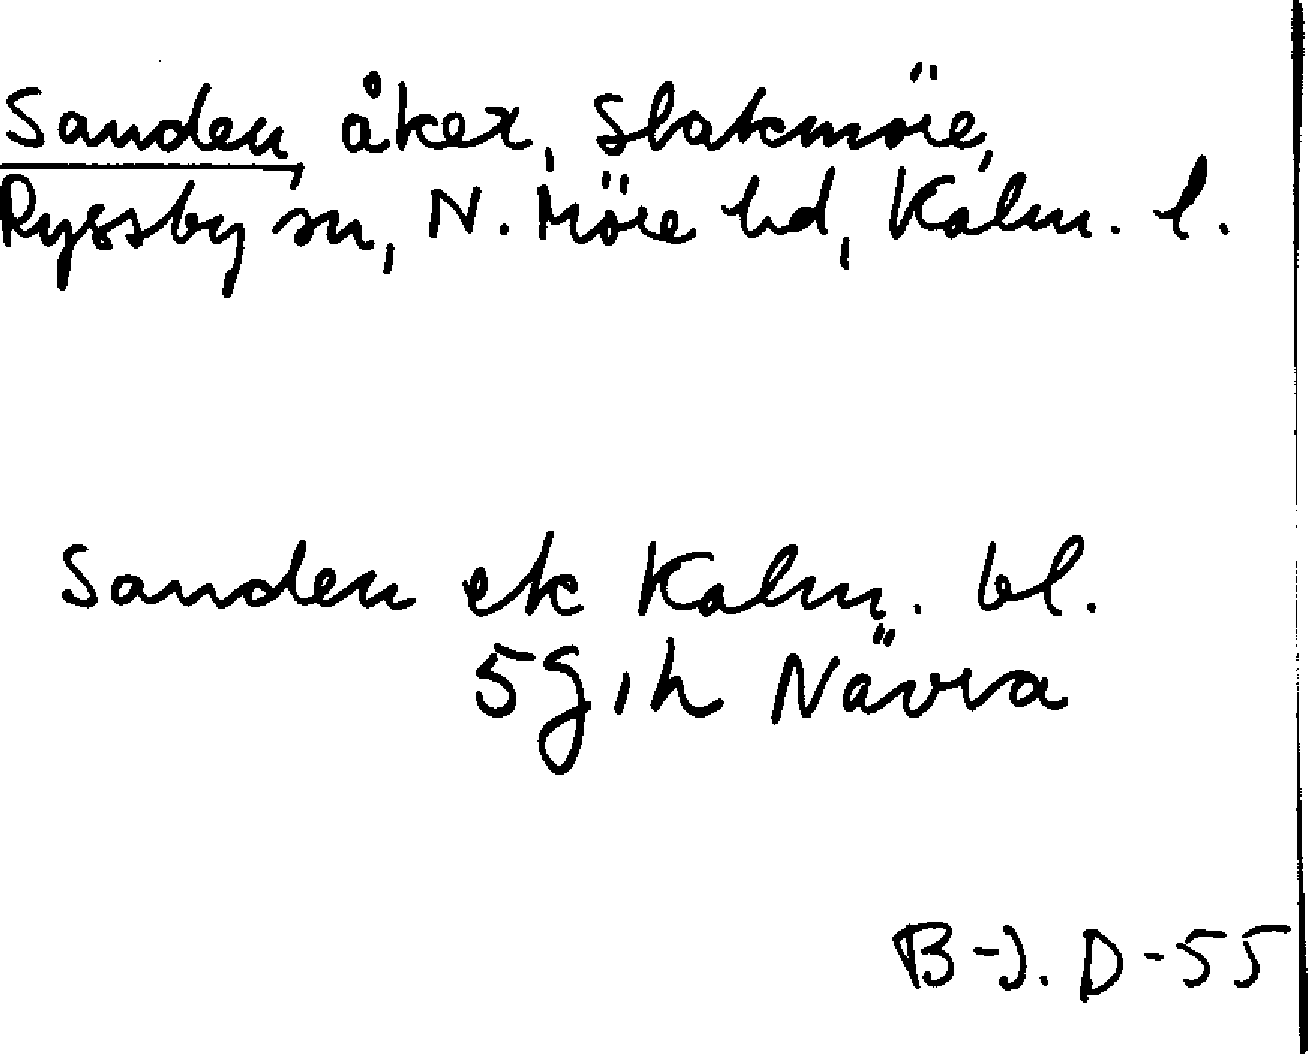 Sanden, åker, Slakmöre,
Ryssby sn, N. Möre hd, Kalm. l.
Sanden ek Kalm. bl.
5 g, h Nävra
B-J. D-55